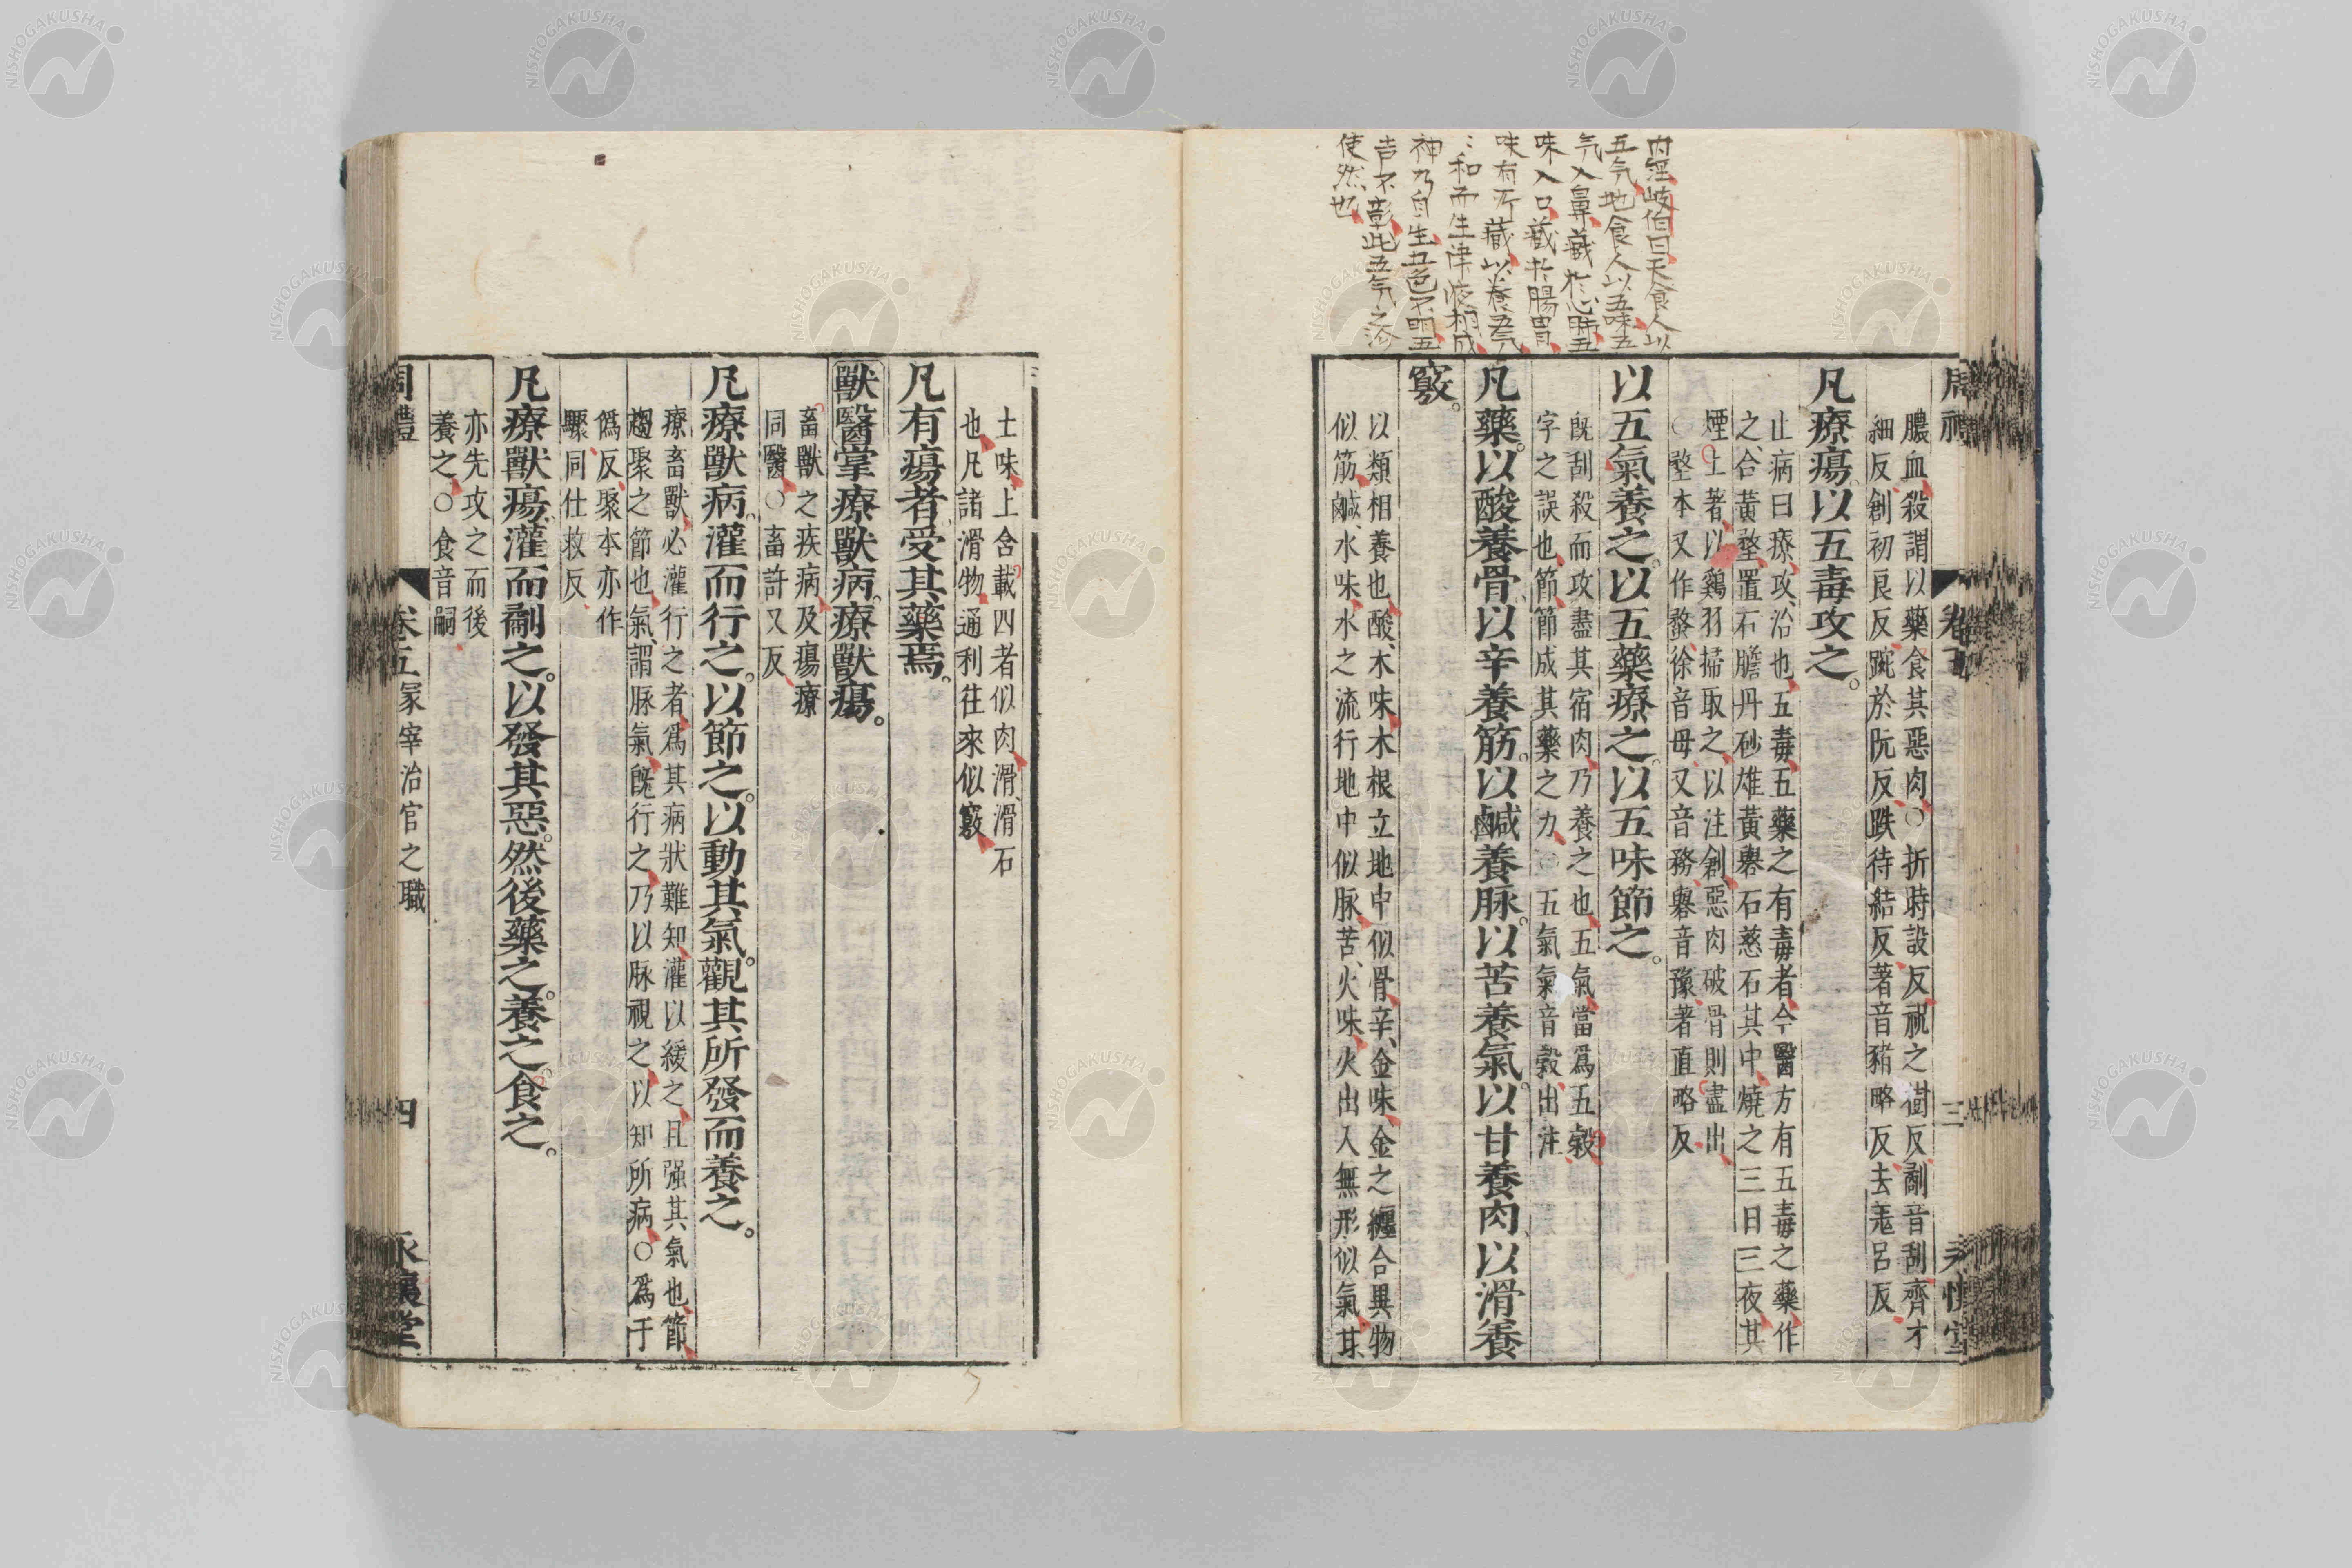 内経岐伯曰天食人以
五気地食人以五味五
気入鼻藏於心肺五
味入口藏於腸胃
味有所藏以養五気
〻和而生津液相成
神乃自生五色不明五
声不彰此五気之
使然也
周禮
卷五
三
永懷堂
膿血殺謂以藥食其惡肉○折時設反祝之樹反劀音刮齊才
細反創初良反踠於阮反跌待結反著音豬略反去羌呂反
凡療瘍以五毒攻之。
止病曰療攻治也五毒五藥之有毒者今醫方有五毒之藥作
之合黃堥置石膽丹砂雄黃礜石慈石其中燒之三日三夜其
煙上著以鷄羽掃取之以注創惡肉破骨則盡出
○堥本又作䥐徐音毋又音務礜音豫著直略反
以五氣養之。以五藥療之。以五味節之。
旣刮殺而攻盡其宿肉乃養之也五氣當爲五穀
字之誤也節節成其藥之力○五氣氣音穀出注
凡藥。以酸養骨、以辛養筋。以鹹養脉。以苦養氣。以甘養肉、以滑養
竅。
以類相養也酸木味木根立地中似骨辛金味金之纏合異物
似筋鹹水味水之流行地中似脉苦火味火出入無形似氣甘
土味土含載四者似肉滑滑石
也凡諸滑物通利往來似竅
凡有瘍者、受其藥焉。
獸醫掌療獸病。療獸瘍。
畜獸之疾病及瘍療
同醫○畜許又反
凡療獸病、灌而行之。以節之。以動其氣。觀其所發而養之。
療畜獸必灌行之者爲其病狀難知灌以緩之且强其氣也節
趨聚之節也氣謂脉氣旣行之乃以脉視之以知所病○爲于
僞反聚本亦作
驟同仕救反
凡療獸瘍、灌而劀之。以發其惡。然後藥之。養之食之。
亦先攻之而後
養之○食音嗣
周禮
卷五 冢宰治官之職
四
永懷堂